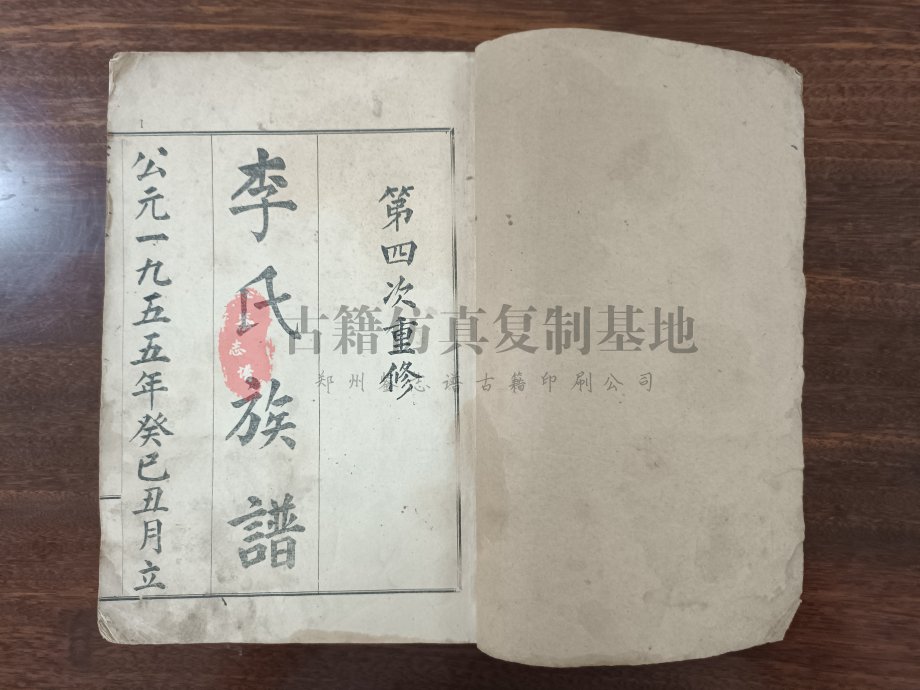 第四次重修
李氏族譜
公元一九五五年癸巳丑月立
古籍仿真复制基地
志谱
郑州 志谱古籍印刷公司